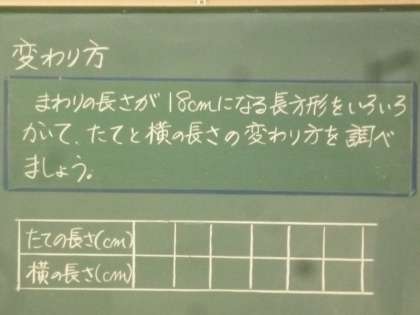 変わり方
まわりの長さが18cmになる長方形をいろいろ
かいて、たてと横の長さの変わり方を調べ
ましょう。
たての長さ(cm)
横の長さ(cm)